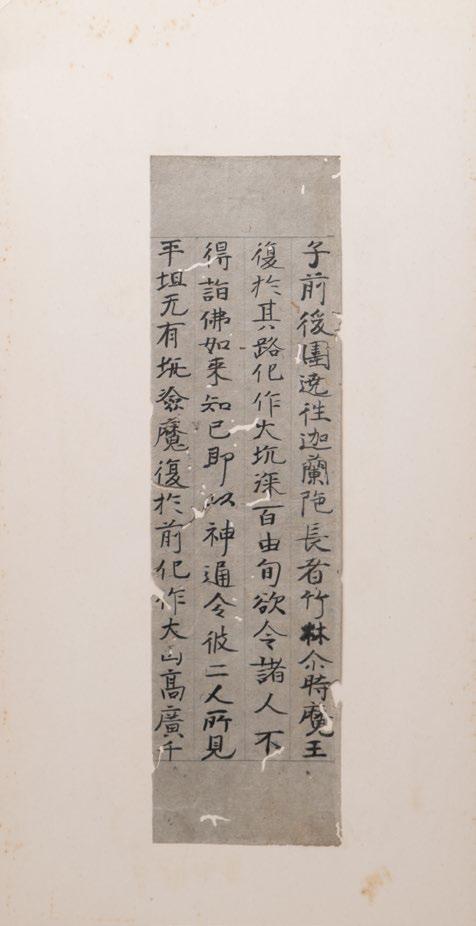 子前後圍遶往迦蘭陁長者竹林尒時魔王
復於其路化作大坑深百由旬欲令諸人不
得詣佛如來知已即以神通令彼二人所見
平坦无有坑澰魔復於前化作大山高廣千